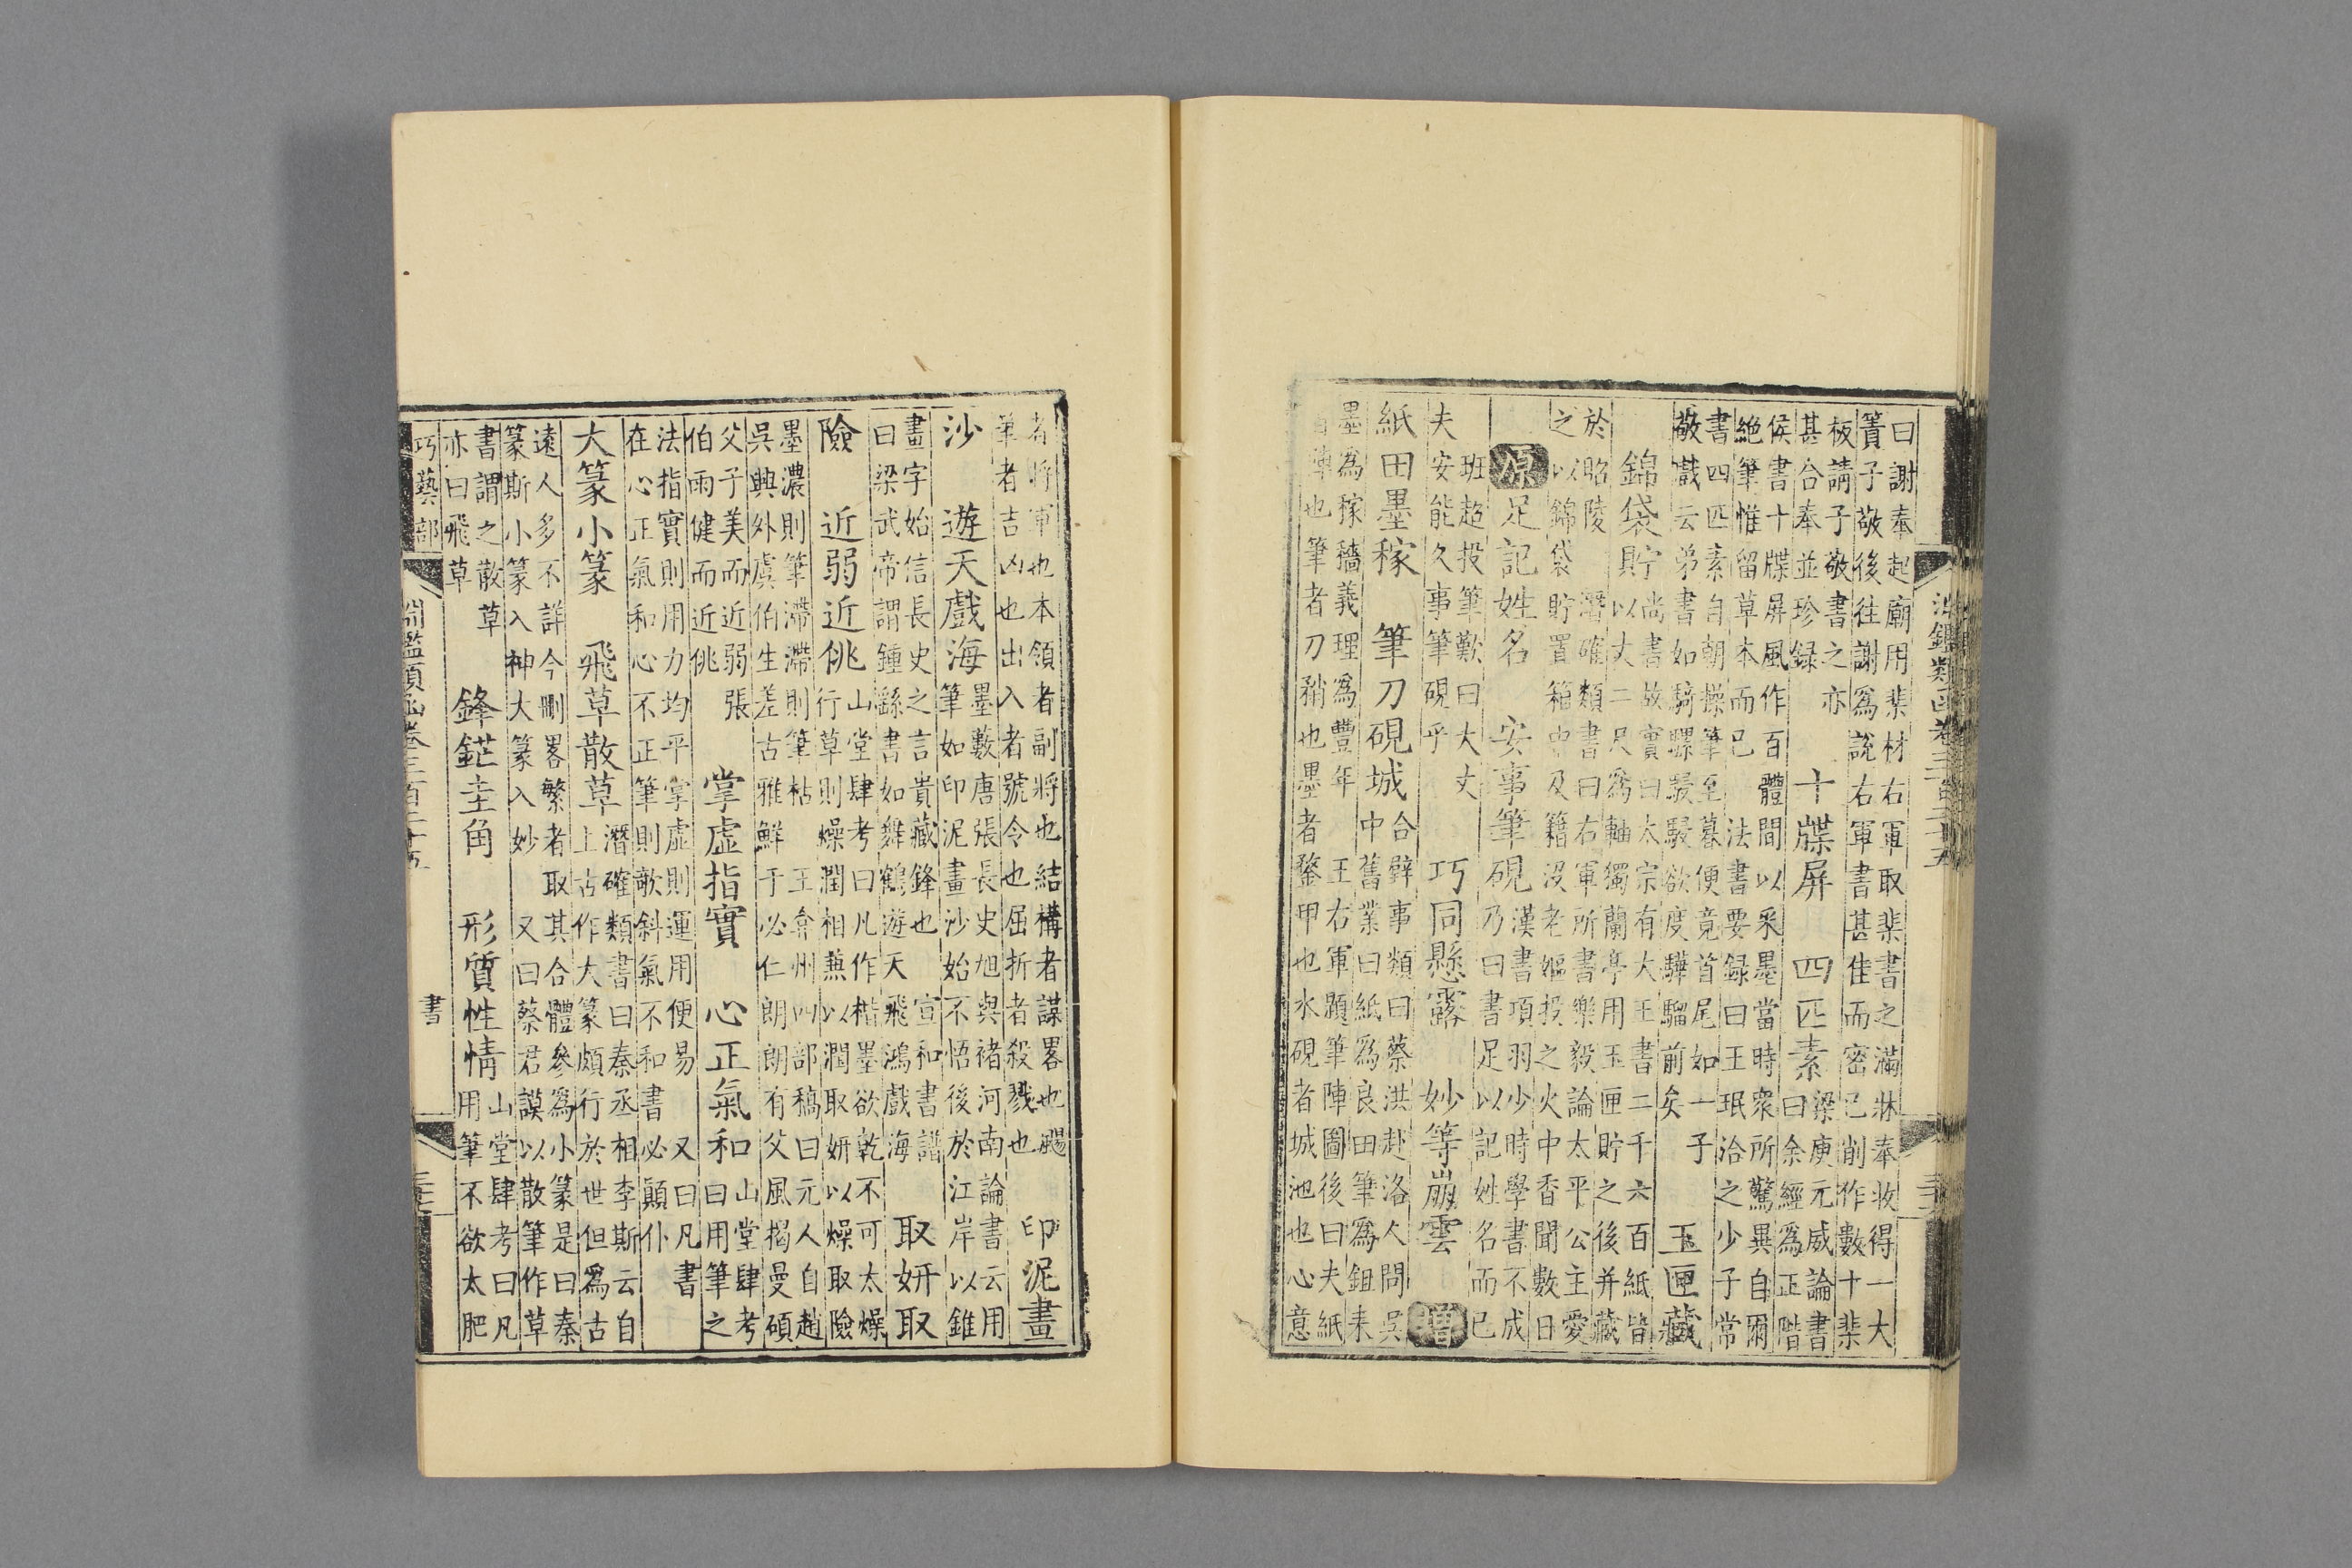 淵鑑類函卷三百二十五
曰謝奉起廟用棐材右軍取棐書之滿牀奉收得一大
簀子敬後往謝爲説右軍書甚佳而密已削作數十棐
板請子敬書之亦
甚合奉並珍録
十牒屏　四匹素
梁庾元威論書
曰余經爲正階
侯書十牒屏風作百體間以采墨當時衆所驚異自爾
絶筆惟留草本而已　法書要録曰王珉洽之少子常
書四匹素自朝操筆至暮便竟首尾如一子
敬戱云弟書如騎騾駸駸欲度驊騮前矣
玉匣藏
錦袋貯
尚書故實曰太宗有大王書二千六百紙皆
以丈二尺爲軸獨蘭亭用玉匣貯之後并藏
於昭陵　潛確類書曰右軍所書樂毅論太平公主愛
之以錦袋貯置箱中及籍沒老嫗投之火中香聞數日
原　足記姓名　安事筆硯
漢書項羽少時學書不成
乃曰書足以記姓名而已
班超投筆歎曰大丈
夫安能久事筆硯乎
巧同懸露　妙等崩雲　增
紙田墨稼　筆刀硯城
合璧事類曰蔡洪赴洛人問吳
中舊業曰紙爲良田筆爲鉏耒
墨爲稼穡義理爲豐年　王右軍題筆陣圖後曰夫紙
陣也筆者刀矟也墨者鍪甲也水硯者城池也心意
者將軍也本領者副將也結構者謀畧也颺
筆者吉凶也出入者號令也屈折者殺戮也
印泥畫
沙　遊天戲海
墨藪唐張長史旭與褚河南論書云用
筆如印泥畫沙始不悟後於江岸以錐
畫字始信長史之言貴藏鋒也　宣和書譜
曰梁武帝謂鍾繇書如舞鶴遊天飛鴻戲海
取妍取
險　近弱近佻
山堂肆考曰凡作楷墨欲乾不可太燥
行草則燥潤相兼以潤取妍以燥取險
墨濃則筆滯滯則筆枯　王弇州四部稿曰元人自趙
吳興外虞伯生差古雅鮮于必仁朗朗有父風揭曼碩
父子美而近弱張
伯雨健而近佻
掌虛指實　心正氣和
山堂肆考
曰用筆之
法指實則用力均平掌虛則運用便易　又曰凡書
在心正氣和心不正筆則敧斜氣不和書必顛仆
大篆小篆　飛草散草
潛確類書曰秦丞相李斯云自
上古作大篆頗行於世但爲古
遠人多不詳今刪畧繁者取其合體參爲小篆是曰秦
篆斯小篆入神大篆入妙　又曰蔡君謨以散筆作草
書謂之散草
亦曰飛草
鋒鋩圭角　形質性情
山堂肆考曰凡
用筆不欲太肥
巧藝部
淵鑑類函卷三百二十五
書